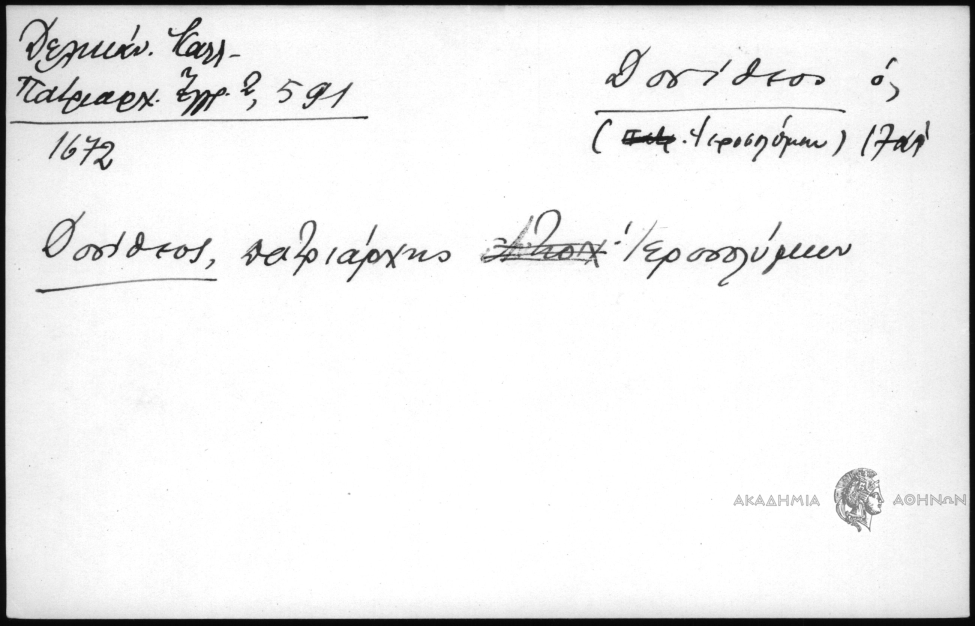 Δελικάν. Καλλ-
Πατριαρχ. Ἔγγρ. 2, 591
1672
Δοσίθεος ὁ,
( Ἱεροσολύμων) 17
Δοσίθεος, πατριάρχης Ἱεροσολύμων
ΑΚΑΔΗΜΙΑ ΑΘΗΝΩΝ